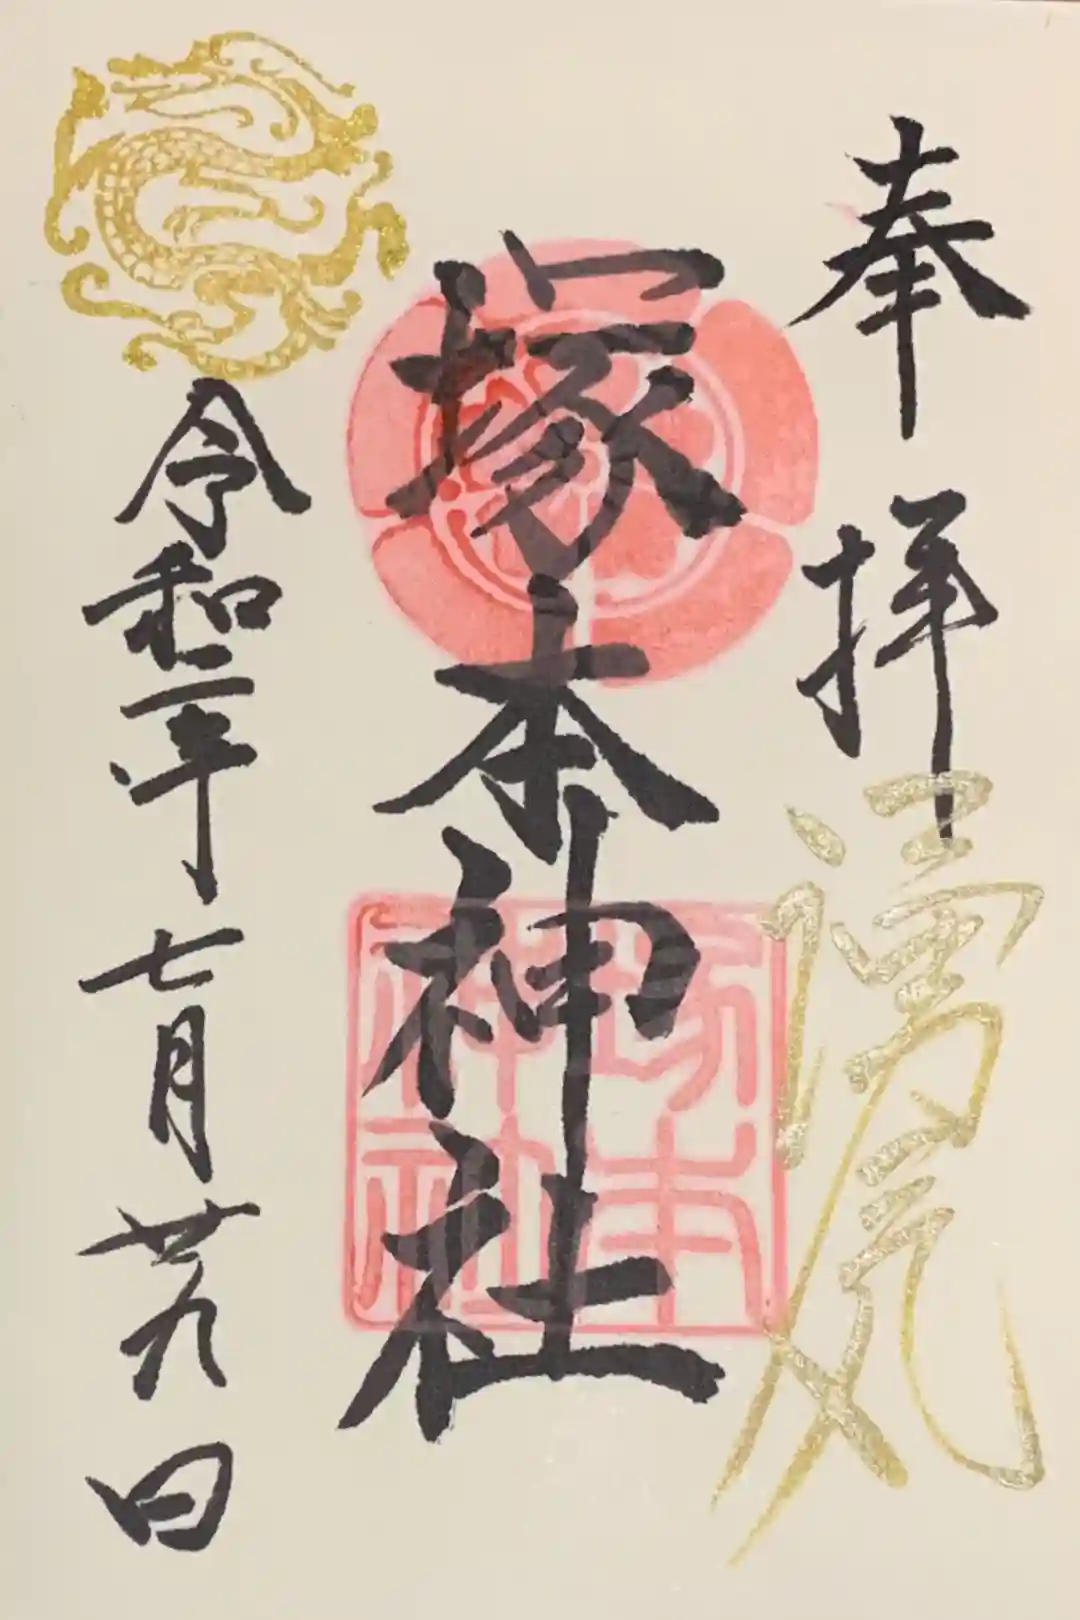 奉拝
勇気
塚本神社
塚本
神社
令和二年七月廿九日